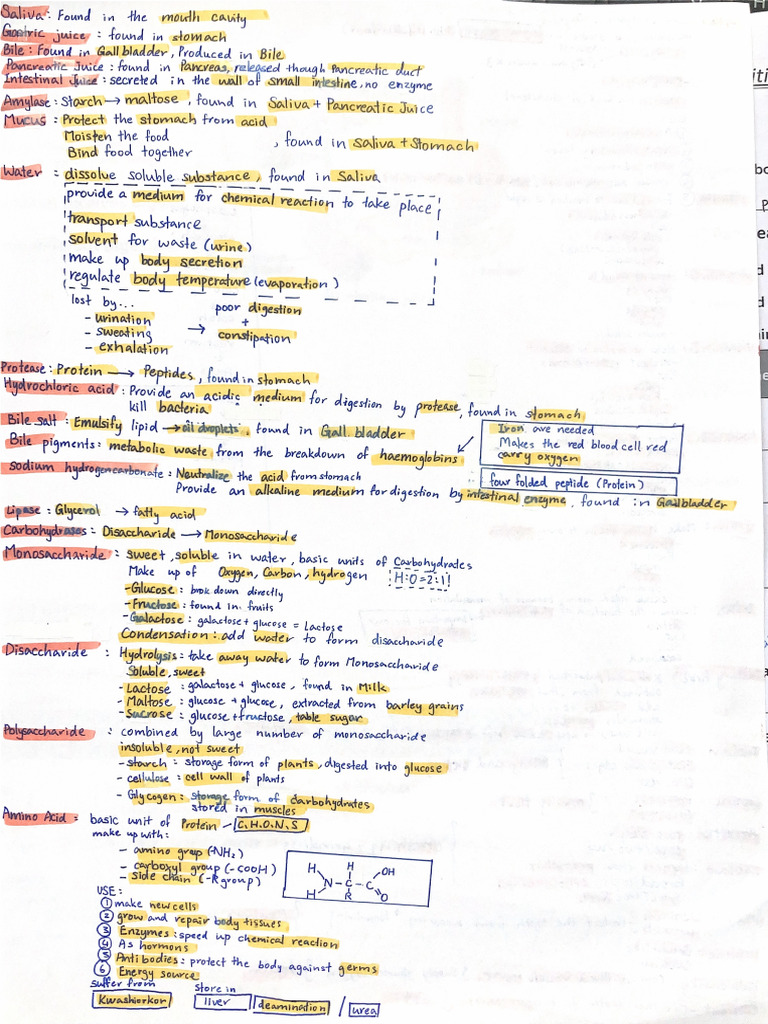 Saliva : Found in the mouth cavity
Gastric juice : found in stomach
Bile : Found in Gallbladder, Produced in Bile
Pancreatic Juice : found in Pancreas, released though Pancreatic duct
Intestinal Juice : secreted in the wall of small intestine, no enzyme
Amylase : Starch → maltose , found in Saliva + Pancreatic Juice
Mucus : Protect the stomach from acid
Moisten the food
, found in saliva + Stomach
Bind food together
Water : dissolve soluble substance , found in Saliva
provide a medium for chemical reaction to take place
transport substance
solvent for waste (urine)
make up body secretion
regulate body temperature (evaporation)
lost by...
- urination
- sweating
- exhalation
→ poor digestion
+
constipation
Protease : Protein → Peptides , found in stomach
Hydrochloric acid : Provide an acidic medium for digestion by protease, found in stomach
kill bacteria
Bile salt : Emulsify lipid → oil droplets , found in Gall bladder
Iron are needed
Makes the red blood cell red
carry oxygen
Bile pigments : metabolic waste from the breakdown of haemoglobins
four folded peptide (Protein)
sodium hydrogencarbonate : Neutralize the acid from stomach
Provide an alkaline medium for digestion by intestinal enzyme , found in Gallbladder
Lipase : Glycerol → fatty acid
Carbohydrases : Disaccharide → Monosaccharide
Monosaccharide : sweet, soluble in water, basic units of Carbohydrates
Make up of Oxygen, Carbon, hydrogen H:O=2:1!
- Glucose : brok down directly
- Fructose : found in fruits
- Galactose : galactose + glucose = Lactose
Condensation : add water to form disaccharide
Disaccharide : Hydrolysis : take away water to form Monosaccharide
Soluble, sweet
- Lactose : galactose + glucose , found in Milk
- Maltose : glucose + glucose, extracted from barley grains
- Sucrose : glucose + fructose, table sugar
Polysaccharide : combined by large number of monosaccharide
insoluble, not sweet
- starch : storage form of plants, digested into glucose
- cellulose : cell wall of plants
- Glycogen : storage form of Carbohydrates
stored in muscles
Amino Acid : basic unit of Protein - C.H.O.N.S
make up with :
- amino group (-NH₂)
- carboxyl group (-COOH)
- side chain (-R group)
H H OH
N - C - C
H R O
USE :
① make new cells
② grow and repair body tissues
③ Enzymes : speed up chemical reaction
④ As hormons
⑤ Antibodies : protect the body against germs
⑥ Energy source
suffer from
Kwashiorkor
store in
liver
deamination / urea